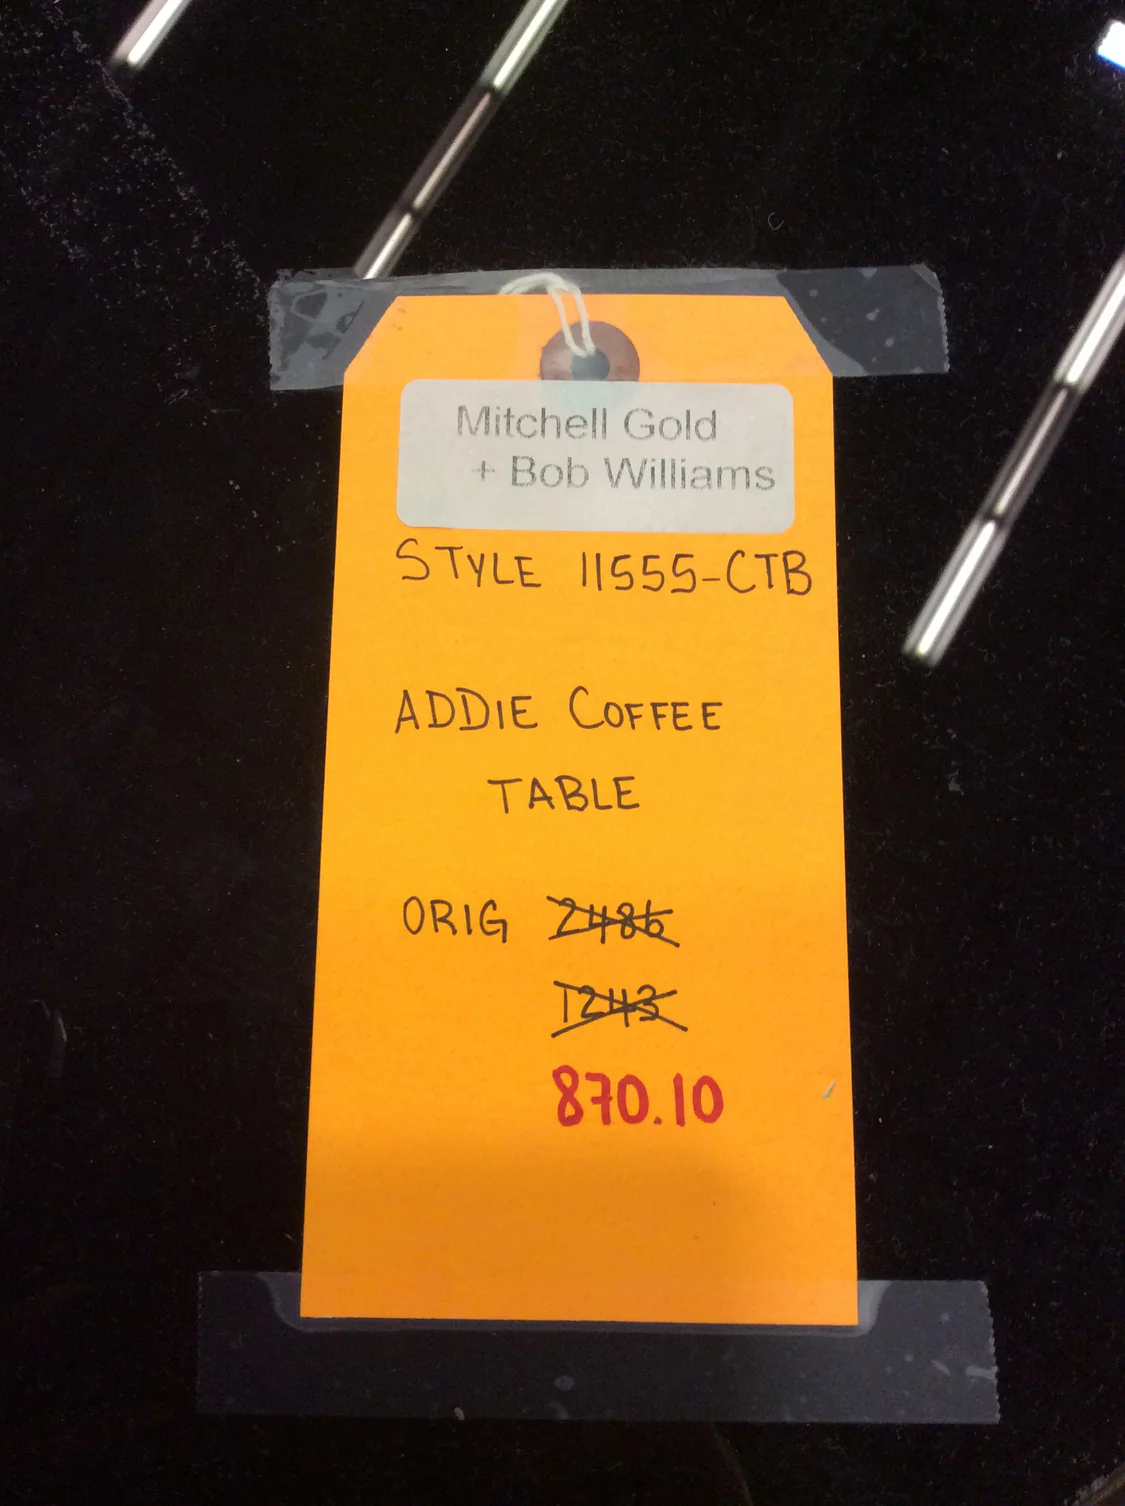 Mitchell Gold
+ Bob Williams
STYLE 11555-CTB
ADDIE COFFEE
TABLE
ORIG 2486
1243
870.10